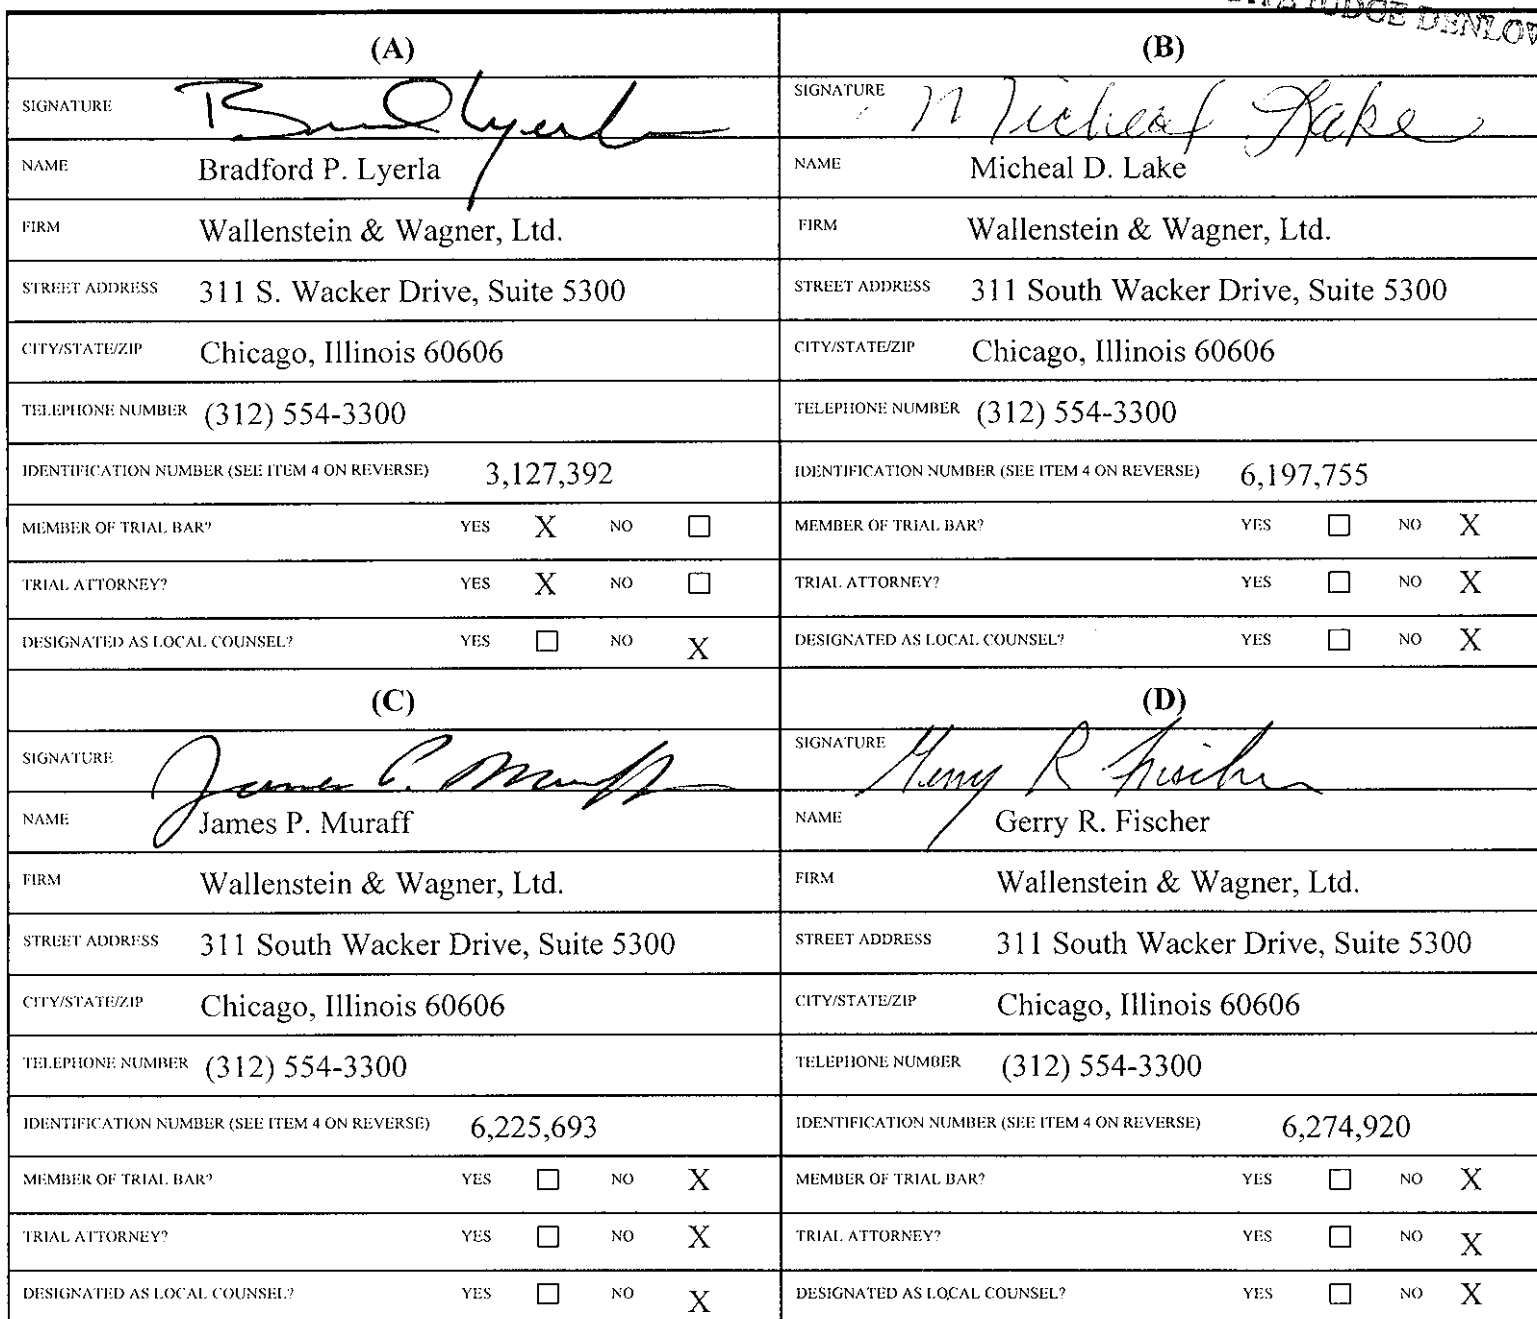 JUDGE DENLOW
(A)
SIGNATURE
NAME Bradford P. Lyerla
FIRM Wallenstein & Wagner, Ltd.
STREET ADDRESS 311 S. Wacker Drive, Suite 5300
CITY/STATE/ZIP Chicago, Illinois 60606
TELEPHONE NUMBER (312) 554-3300
IDENTIFICATION NUMBER (SEE ITEM 4 ON REVERSE) 3,127,392
MEMBER OF TRIAL BAR? YES X NO ☐
TRIAL ATTORNEY? YES X NO ☐
DESIGNATED AS LOCAL COUNSEL? YES ☐ NO X
(B)
SIGNATURE Micheal Lake
NAME Micheal D. Lake
FIRM Wallenstein & Wagner, Ltd.
STREET ADDRESS 311 South Wacker Drive, Suite 5300
CITY/STATE/ZIP Chicago, Illinois 60606
TELEPHONE NUMBER (312) 554-3300
IDENTIFICATION NUMBER (SEE ITEM 4 ON REVERSE) 6,197,755
MEMBER OF TRIAL BAR? YES ☐ NO X
TRIAL ATTORNEY? YES ☐ NO X
DESIGNATED AS LOCAL COUNSEL? YES ☐ NO X
(C)
SIGNATURE James P. Muraff
NAME James P. Muraff
FIRM Wallenstein & Wagner, Ltd.
STREET ADDRESS 311 South Wacker Drive, Suite 5300
CITY/STATE/ZIP Chicago, Illinois 60606
TELEPHONE NUMBER (312) 554-3300
IDENTIFICATION NUMBER (SEE ITEM 4 ON REVERSE) 6,225,693
MEMBER OF TRIAL BAR? YES ☐ NO X
TRIAL ATTORNEY? YES ☐ NO X
DESIGNATED AS LOCAL COUNSEL? YES ☐ NO X
(D)
SIGNATURE Gerry R Fischer
NAME Gerry R. Fischer
FIRM Wallenstein & Wagner, Ltd.
STREET ADDRESS 311 South Wacker Drive, Suite 5300
CITY/STATE/ZIP Chicago, Illinois 60606
TELEPHONE NUMBER (312) 554-3300
IDENTIFICATION NUMBER (SEE ITEM 4 ON REVERSE) 6,274,920
MEMBER OF TRIAL BAR? YES ☐ NO X
TRIAL ATTORNEY? YES ☐ NO X
DESIGNATED AS LOCAL COUNSEL? YES ☐ NO X